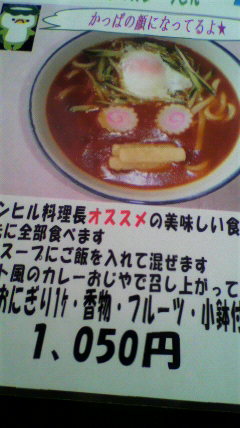 かっぱの顔になってるよ★
ンヒル料理長オススメの美味しい食
に全部食べます
スープにご飯を入れて混ぜます
ト風のカレーおじやで召し上がって
おにぎり1ケ・香物・フルーツ・小鉢付
1、050円